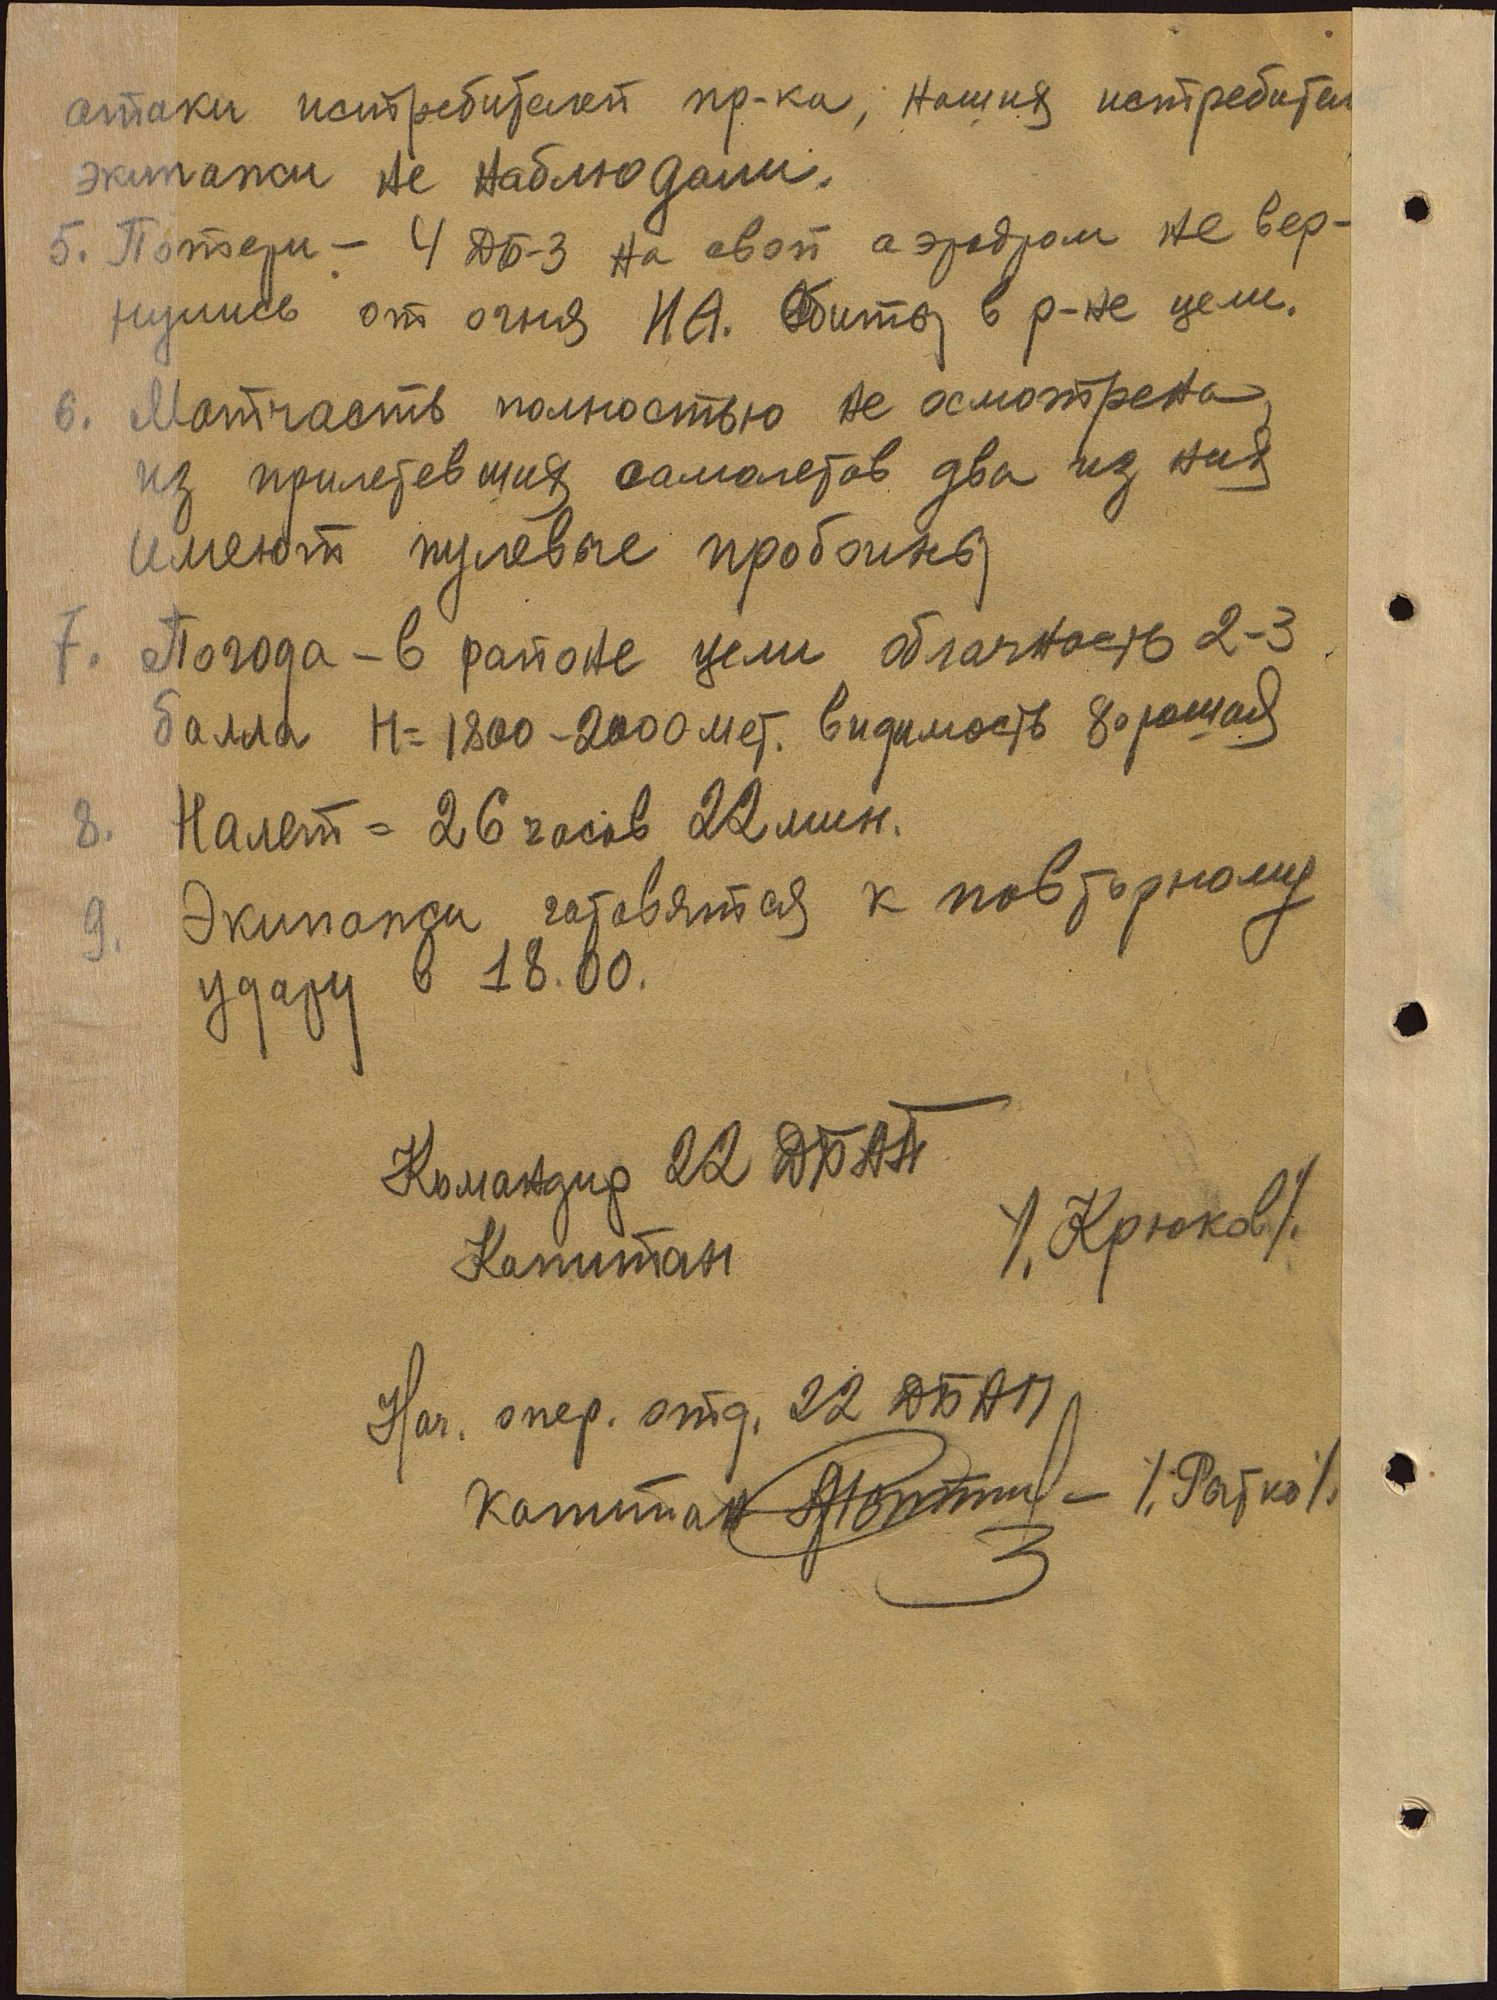 атаки истребителей пр-ка, наших истребител
экипажи не наблюдали.
5. Потери – 4 ДБ-3 на свой аэродром не вер-
нулись от огня ИА. Сбиты в р-не цели.
6. Матчасть полностью не осмотрена,
из прилетевших самолетов два из них
имеют пулевые пробоины
7. Погода – в районе цели облачность 2-3
балла Н= 1800-2000 мет. видимость хорошая
8. Налет = 26 часов 22 мин.
9. Экипажи готовятся к повторному
удару в 18.00.
Командир 22 ДБАП
Капитан /. Крюков/.
Нач. опер. отд. 22 ДБАП
капитан – /. Рытко/.